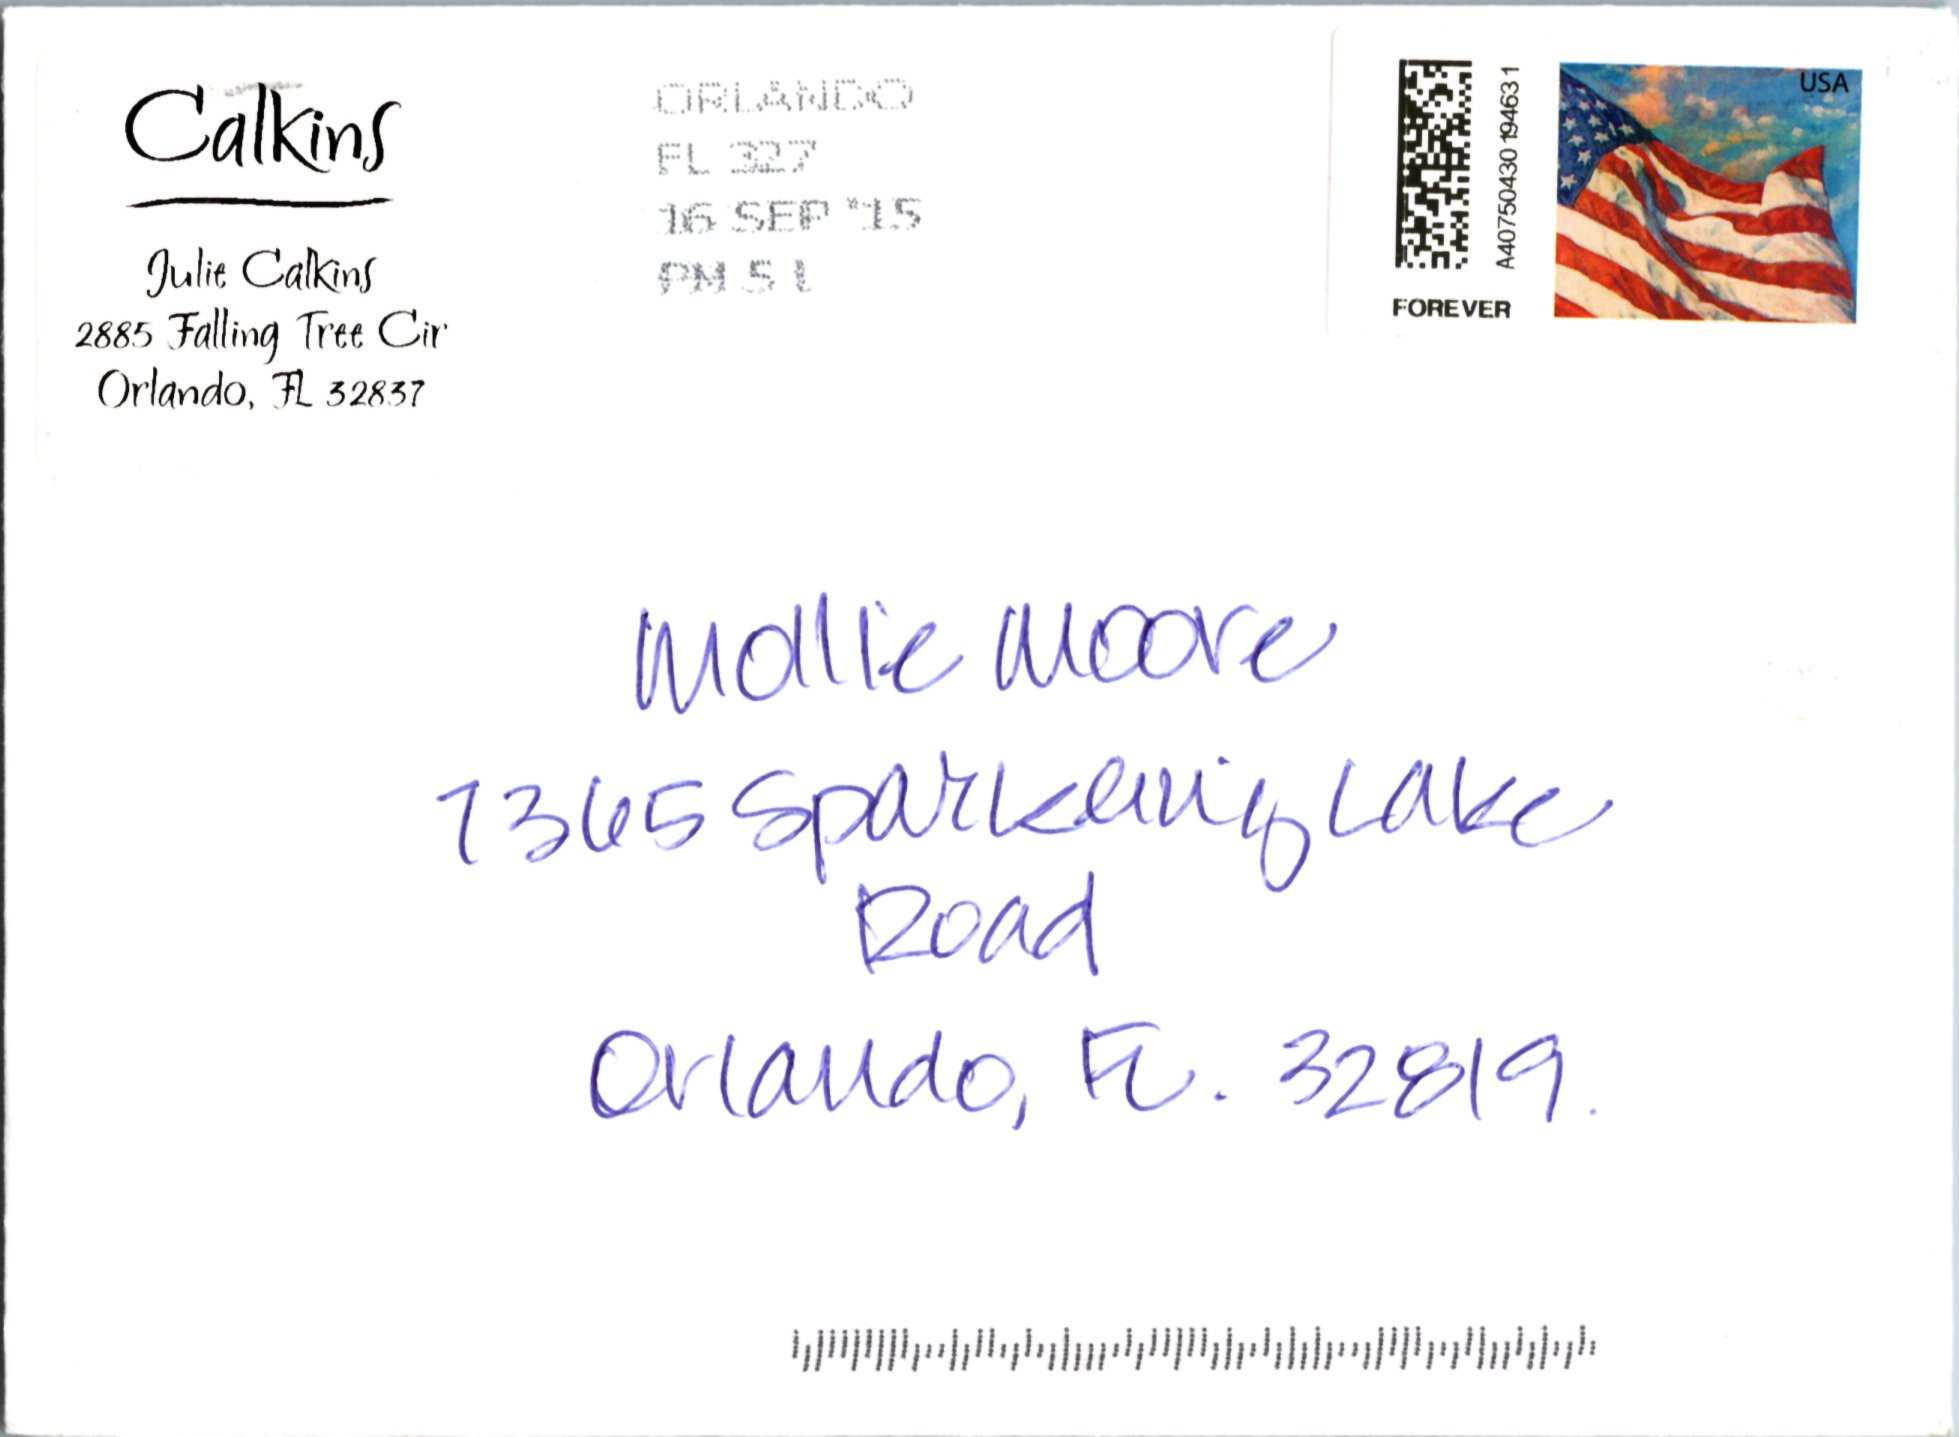 Calkins
Julie Calkins
2885 Falling Tree Cir
Orlando, FL 32837
ORLANDO
FL 327
16 SEP '15
PM 5 L
A40750430 194631
FOREVER
USA
Mollie Moore
7365 Sparkling Lake
Road
Orlando, FL. 32819.